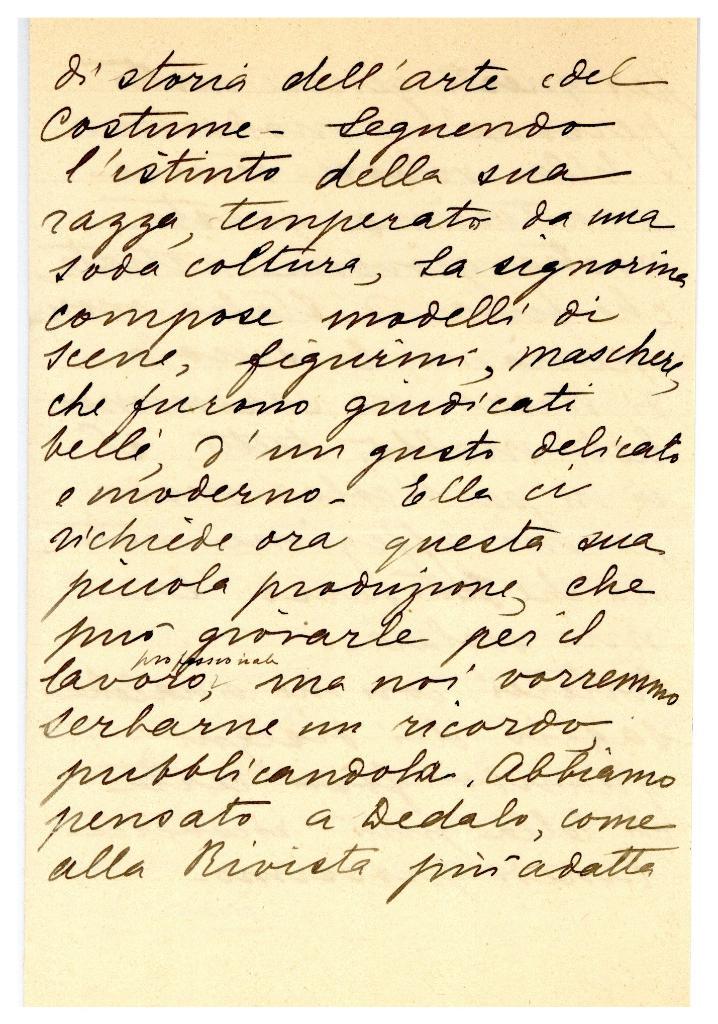 di storia dell'arte e del
Costume - Seguendo
l'istinto della sua
razza, temperato da una
soda coltura, la signorina
compose modelli di
scene, figurini, maschere,
che furono giudicati
belli, d'un gusto delicato
e moderno - Ella ci
richiede ora questa sua
piccola produzione, che
può giovarle per il
professionale
lavoro, ma noi vorremmo
serbarne un ricordo,
pubblicandola. Abbiamo
pensato a Dedalo, come
alla Rivista più adatta